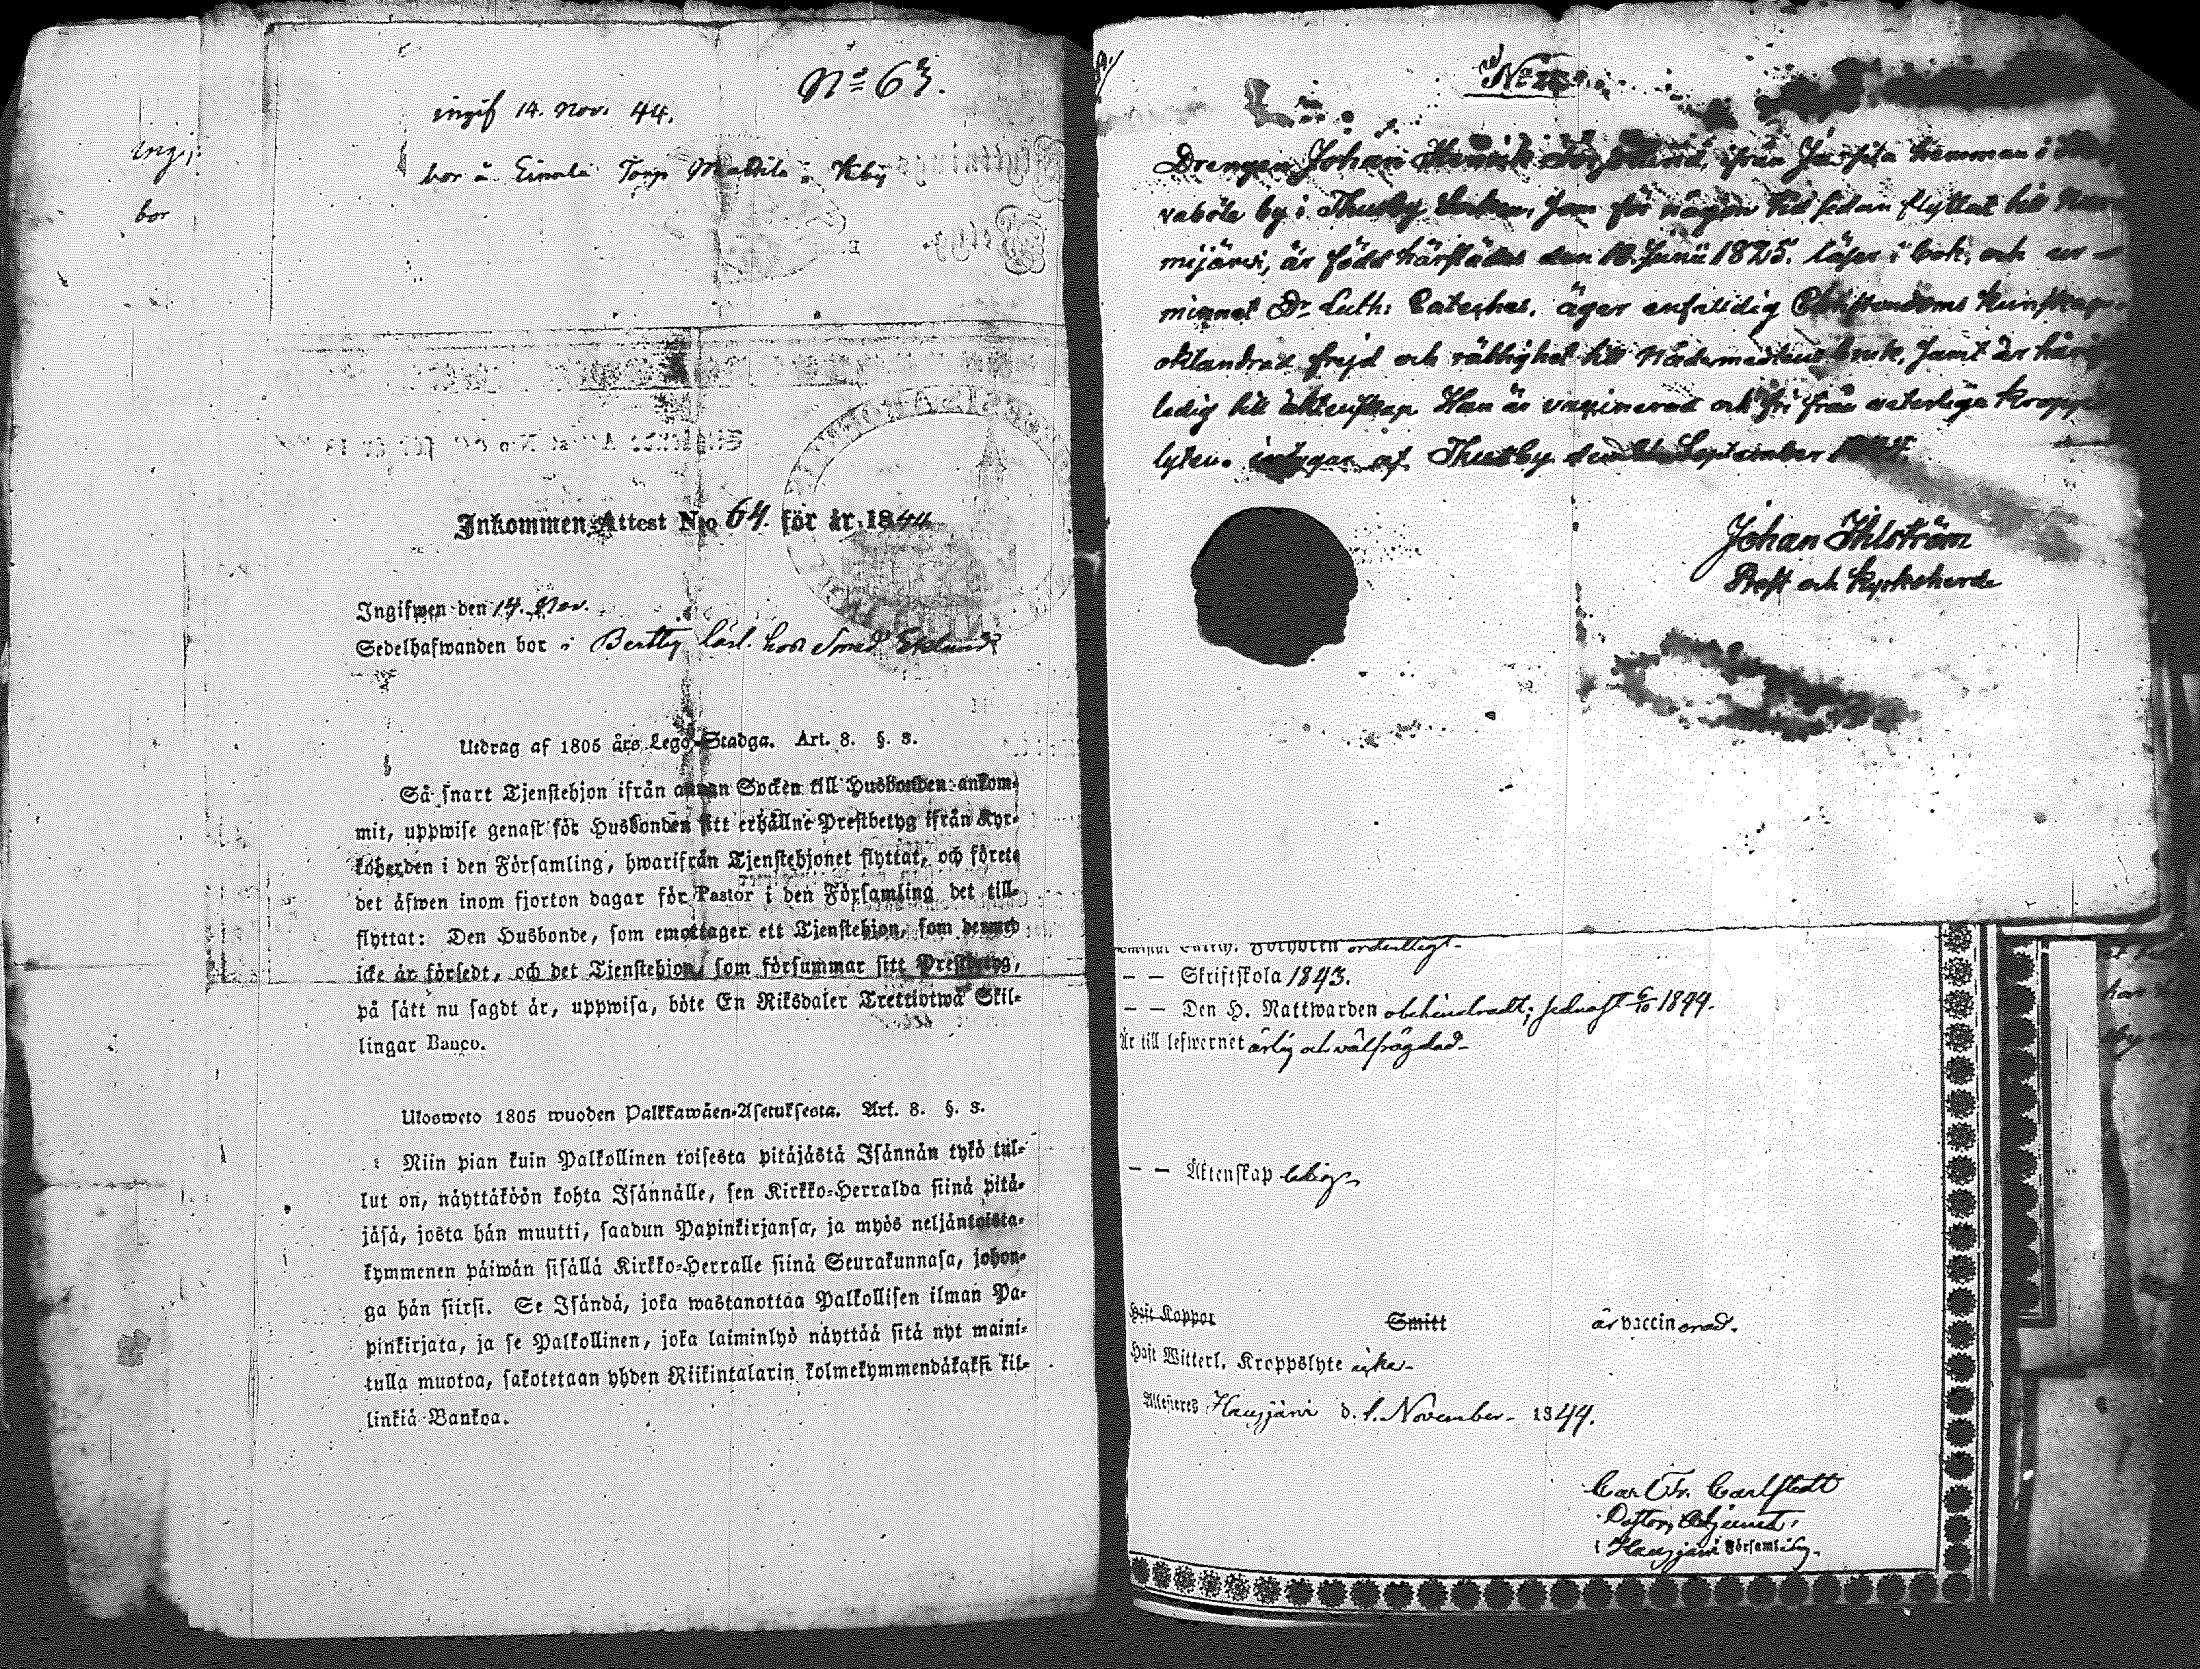 No 63.
ingif 14. Nov. 44.
bor å Einola Torp i Kby
ingi
bor
Inkommen Attest N:o 64. för år 1844
Ingifwen den 14. Nov.
Sedelhafwanden bor i Bertby hos Smed Eklund
Utdrag af 1805 års Lego-Stadga. Art. 8. §. 3.
Så snart Tjenstehjon ifrån annan Socken till Husbonden ankom-
mit, uppwise genast för Husbonden sitt erhållne Prestbetyg ifrån Kyr-
koherden i den Församling, hwarifrån Tjenstehjonet flyttat, och förete
det äfwen inom fjorton dagar för Pastor i den Församling det till-
flyttat: Den Husbonde, som emottager ett Tjenstehjon, som dermed
icke är försedt, och det Tjenstehjon, som försummar sitt Prestbetyg,
på sätt nu sagdt är, uppwisa, böte En Riksdaler Trettiotwå Skil-
lingar Banco.
Ulosweto 1805 wuoden Palkkawäen-Asetuksesta. Art. 8. §. 3.
Niin pian kuin Palkollinen toisesta pitäjästä Isännän tykö tul-
lut on, näyttäköön kohta Isännälle, sen Kirkko-Herralda siinä pitä-
jäsä, josta hän muutti, saadun Papinkirjansa, ja myös neljäntoista-
kymmenen päiwän sisällä Kirkko-Herralle siinä Seurakunnasa, johon-
ga hän siirsi. Se Isändä, joka wastanottaa Palkollisen ilman Pa-
pinkirjata, ja se Palkollinen, joka laiminlyö näyttää sitä nyt maini-
tulla muotoa, sakotetaan yhden Riikintalarin kolmekymmendäkaksi kil-
linkiä Bankoa.
No
Drengen Johan Henrik ifrån hemman i
vaböle by i Thusby Socken, som för någon tid sedan flyttat till Nur-
mijärvi, är född härstädes den 10. Junii 1825. läser i bok, och ur
minnet Dr Luth: Cateches, äger enfaldig Christendoms kunskap,
oklandrad frejd och rättighet till Nådemedlens bruk, samt är här
ledig till äktenskap. Han är vaxinerad och fri från vaterliga kropps
lyten. intygar af Thusby den September 1844.
Johan Ihlström
Prost och Kyrkoherde
ordentligt.
— — Skriftskola 1843.
— — Den H. Nattwarden obehindradt; sednast 6/10 1844.
Är till lefwernet ärlig och välfrägdad.
— — Äktenskap ledig.
Haft Koppor Smitt är vaccinerad.
Haft Witterl. Kroppslyte icke.
Attesteres Hausjärvi d. 1. November 1844.
Carl Fr. Carlstedt
Pastors Adjunct.
i Hausjärvi Församling.